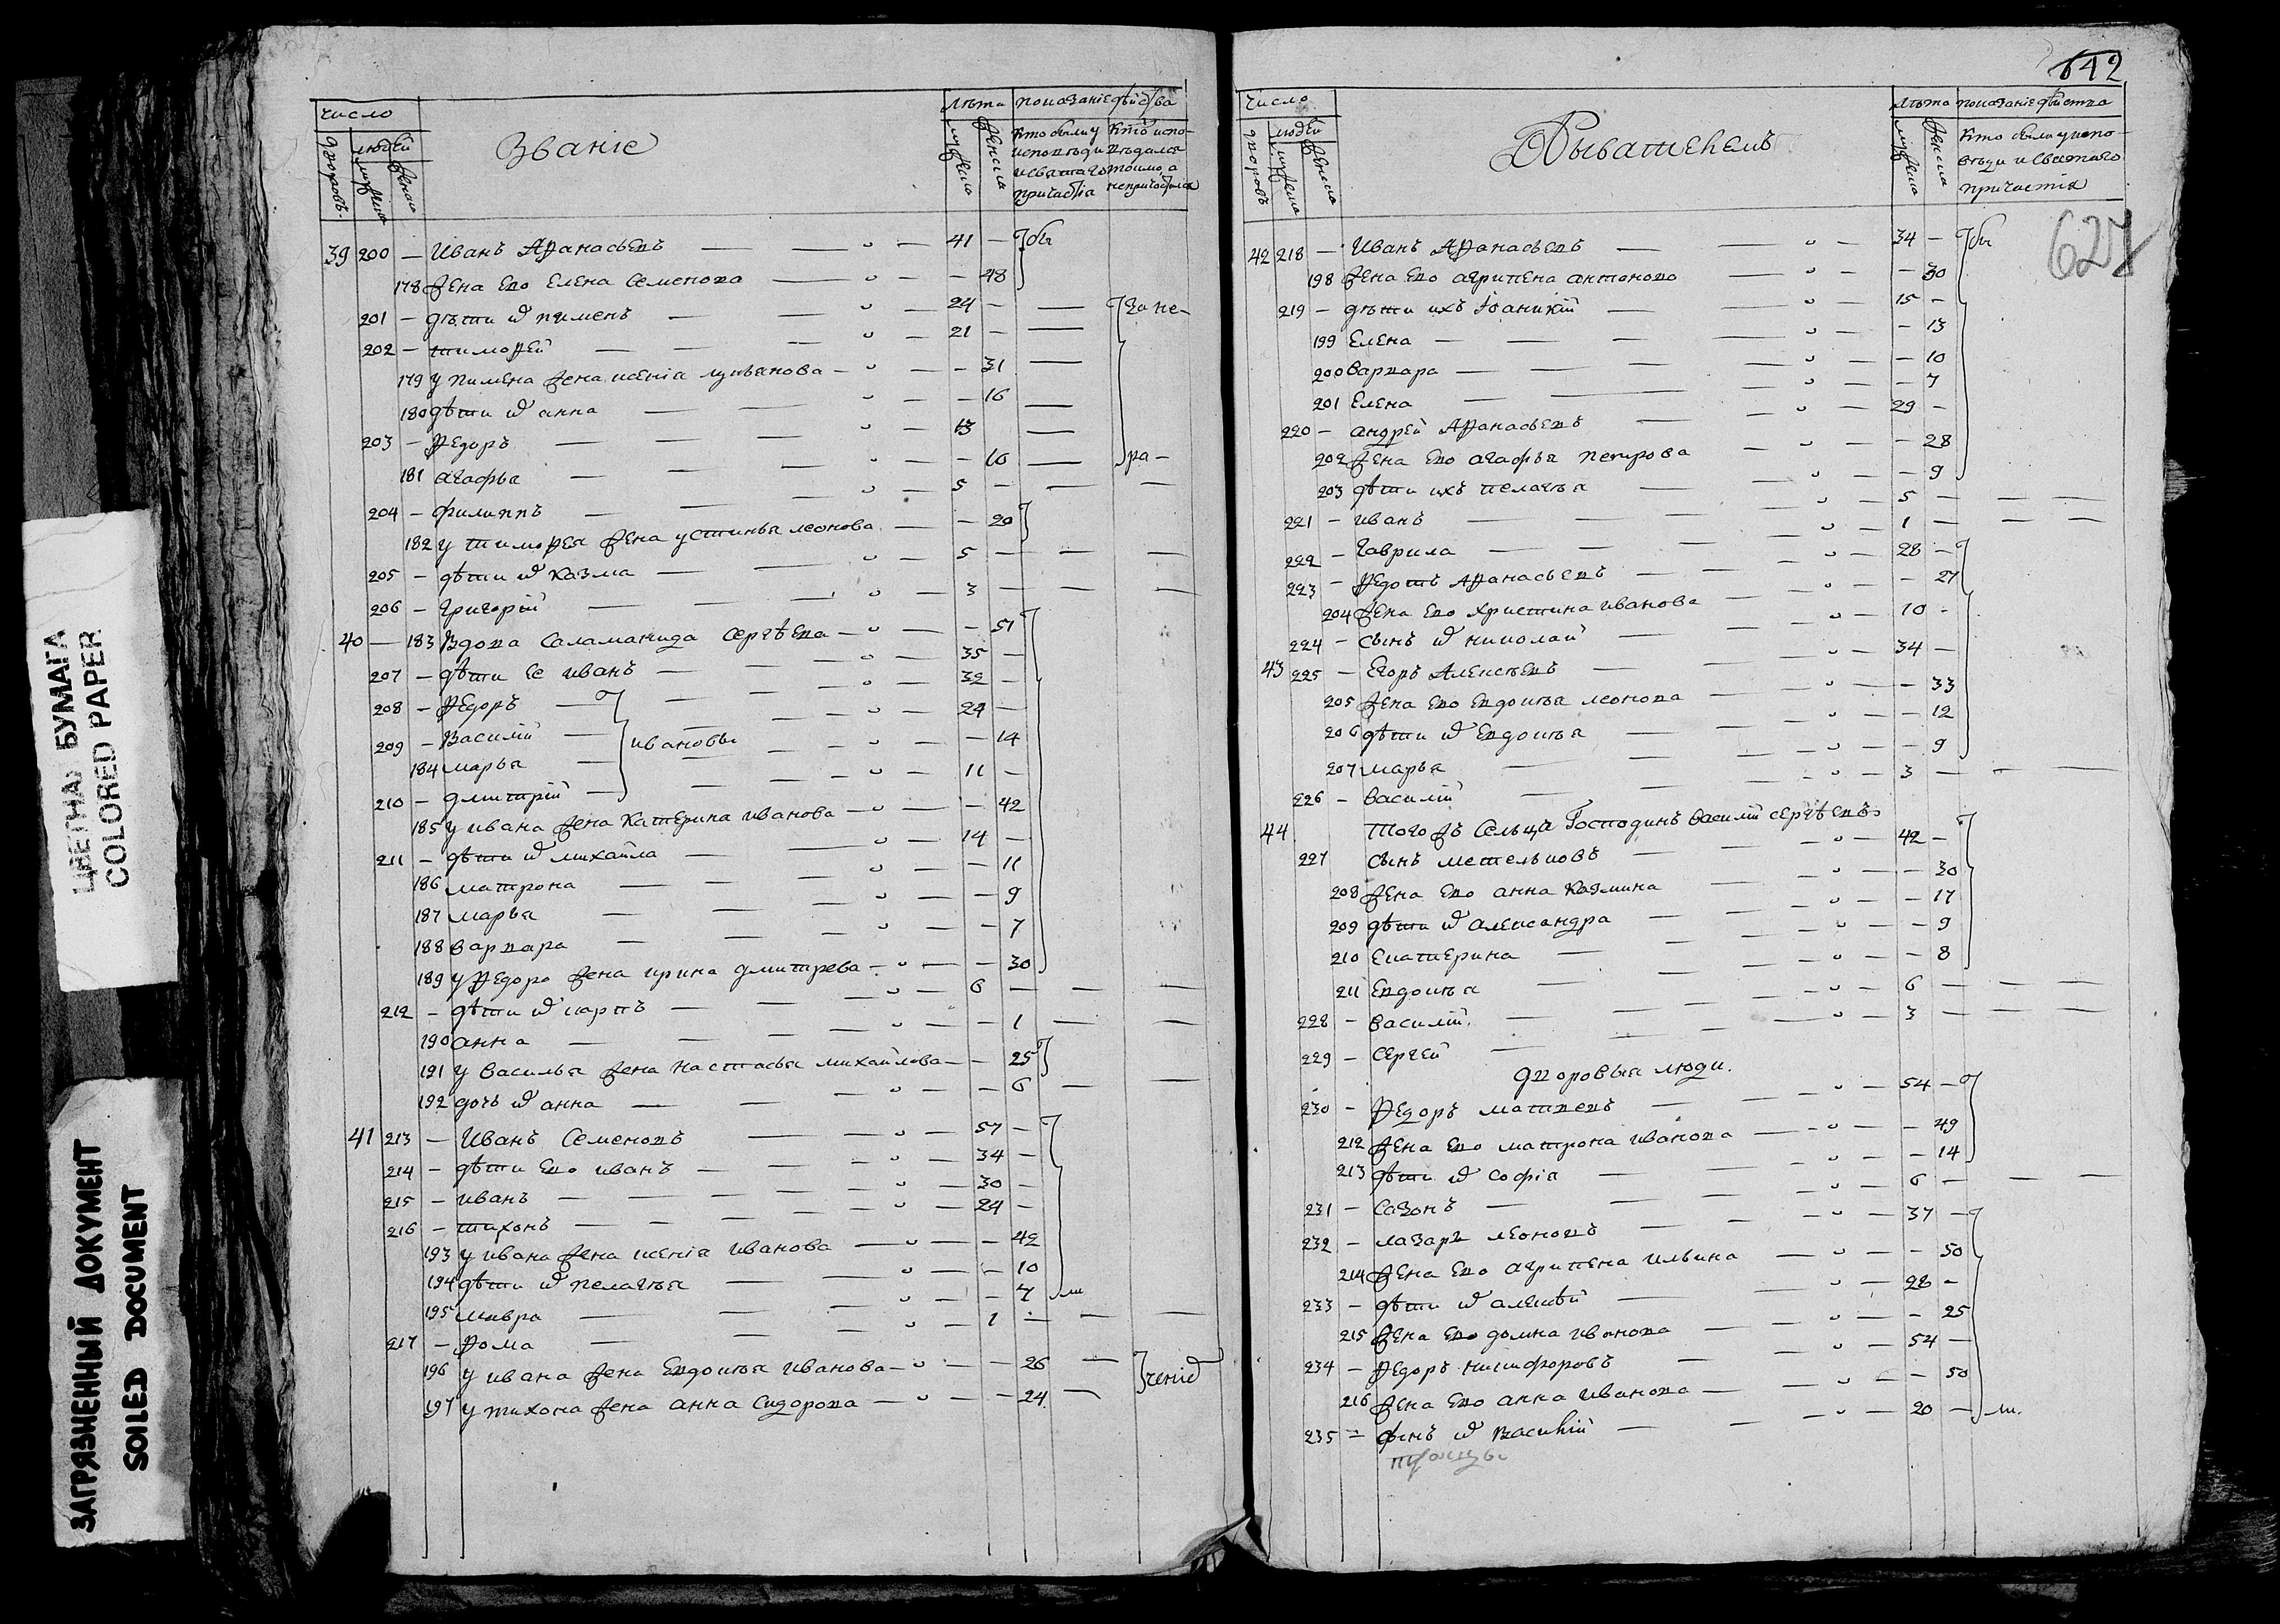 ЦВЕТНАЯ БУМАГА
COLORED PAPER
ЗАГРЯЗНЕННЫЙ ДОКУМЕНТ
SOILED DOCUMENT
число
дворовъ людей мужеска женска
Званіе
лѣта показаніе дѣйства
мужеска женска
кто были у исповѣди и святаго причастія
кто исповѣдался токмо, а не причастился
39 200 — Иванъ Афанасьевъ — 41 — бы
178 жена ево Елена Семенова — 48
201 — дѣти ѿ пименъ — 24 — за не-
202 — тимофей — 21
179 у пимена жена ксеніа лукьянова — 31
180 дѣти ѿ анна — 16
203 — Федоръ — 13
181 агафья — 10 — ра-
204 — филиппъ — 5
182 у тимофея жена устинья леонова — 20
205 — дѣти ѿ козма — 5
206 — григорій — 3
40 — 183 вдова Саламанида Сергѣева — 51
207 — дѣти ее иванъ — 35
208 — Федоръ — 32
209 — Василій — ивановы — 24
184 марья — 14
210 — дмитрій — 11
185 у ивана жена катерина иванова — 42
211 — дѣти ѿ михайла — 14
186 матрона — 11
187 марья — 9
188 варвара — 7
189 у Федора жена ирина дмитрева — 30
212 — дѣти ѿ карпъ — 6
190 анна — 1
191 у василья жена настасья михайлова — 25
192 дочь ѿ анна — 6
41 213 — Иванъ Семеновъ — 57
214 — дѣти ево иванъ — 34
215 — иванъ — 30
216 — тихонъ — 24
193 у ивана жена ксеніа иванова — 42
194 дѣти ѿ пелагѣя — 10
195 мавра — 7 ли
217 — Фома — 1
196 у ивана жена Евдокѣя иванова — 26 — ченіе
197 у тихона жена анна Сидорова — 24
642
627
число
дворовъ людей мужеска женска
лѣта показаніе дѣйства
мужеска женска
кто были у исповѣди и святаго причастія
42 218 — Иванъ Афанасьевъ — 34 — бы
198 жена ево агрипена антонова — 30
219 — дѣти ихъ Іоаникій — 15
199 Елена — 13
200 варвара — 10
201 Елена — 7
220 — андрей Афанасьевъ — 29
202 жена ево агафья петрова — 28
203 дѣти ихъ пелагѣя — 9
221 — иванъ — 5
222 — Гаврила — 1
223 — Федотъ Афанасьевъ — 28
204 жена ево христина иванова — 27
224 — сынъ ѿ николай — 10
43 225 — Егоръ Алексѣевъ — 34
205 жена ево Евдокѣя леонова — 33
206 дѣти ѿ Евдокѣя — 12
207 марья — 9
226 — василій — 3
44 Тогожъ Сельца Господинъ василій сергѣевъ
227 сынъ метельковъ — 42
208 жена ево анна козмина — 30
209 дѣти ѿ александра — 17
210 Екатерина — 9
211 Евдокѣя — 8
228 — василій — 6
229 — Сергей — 3
дворовыя люди.
230 — Федоръ матвеевъ — 54
212 жена ево матрона иванова — 49
213 дѣти ѿ софіа — 14
231 — Сазонъ — 6
232 — лазарь леоновъ — 37
214 жена ево агрипена ильина — 50
233 — дѣти ѿ алексѣй — 28
215 жена ево домна иванова — 25
234 — Федоръ никифоровъ — 54
216 жена ево анна иванова — 50
235 — сынъ ѿ василій — 20 — ли.